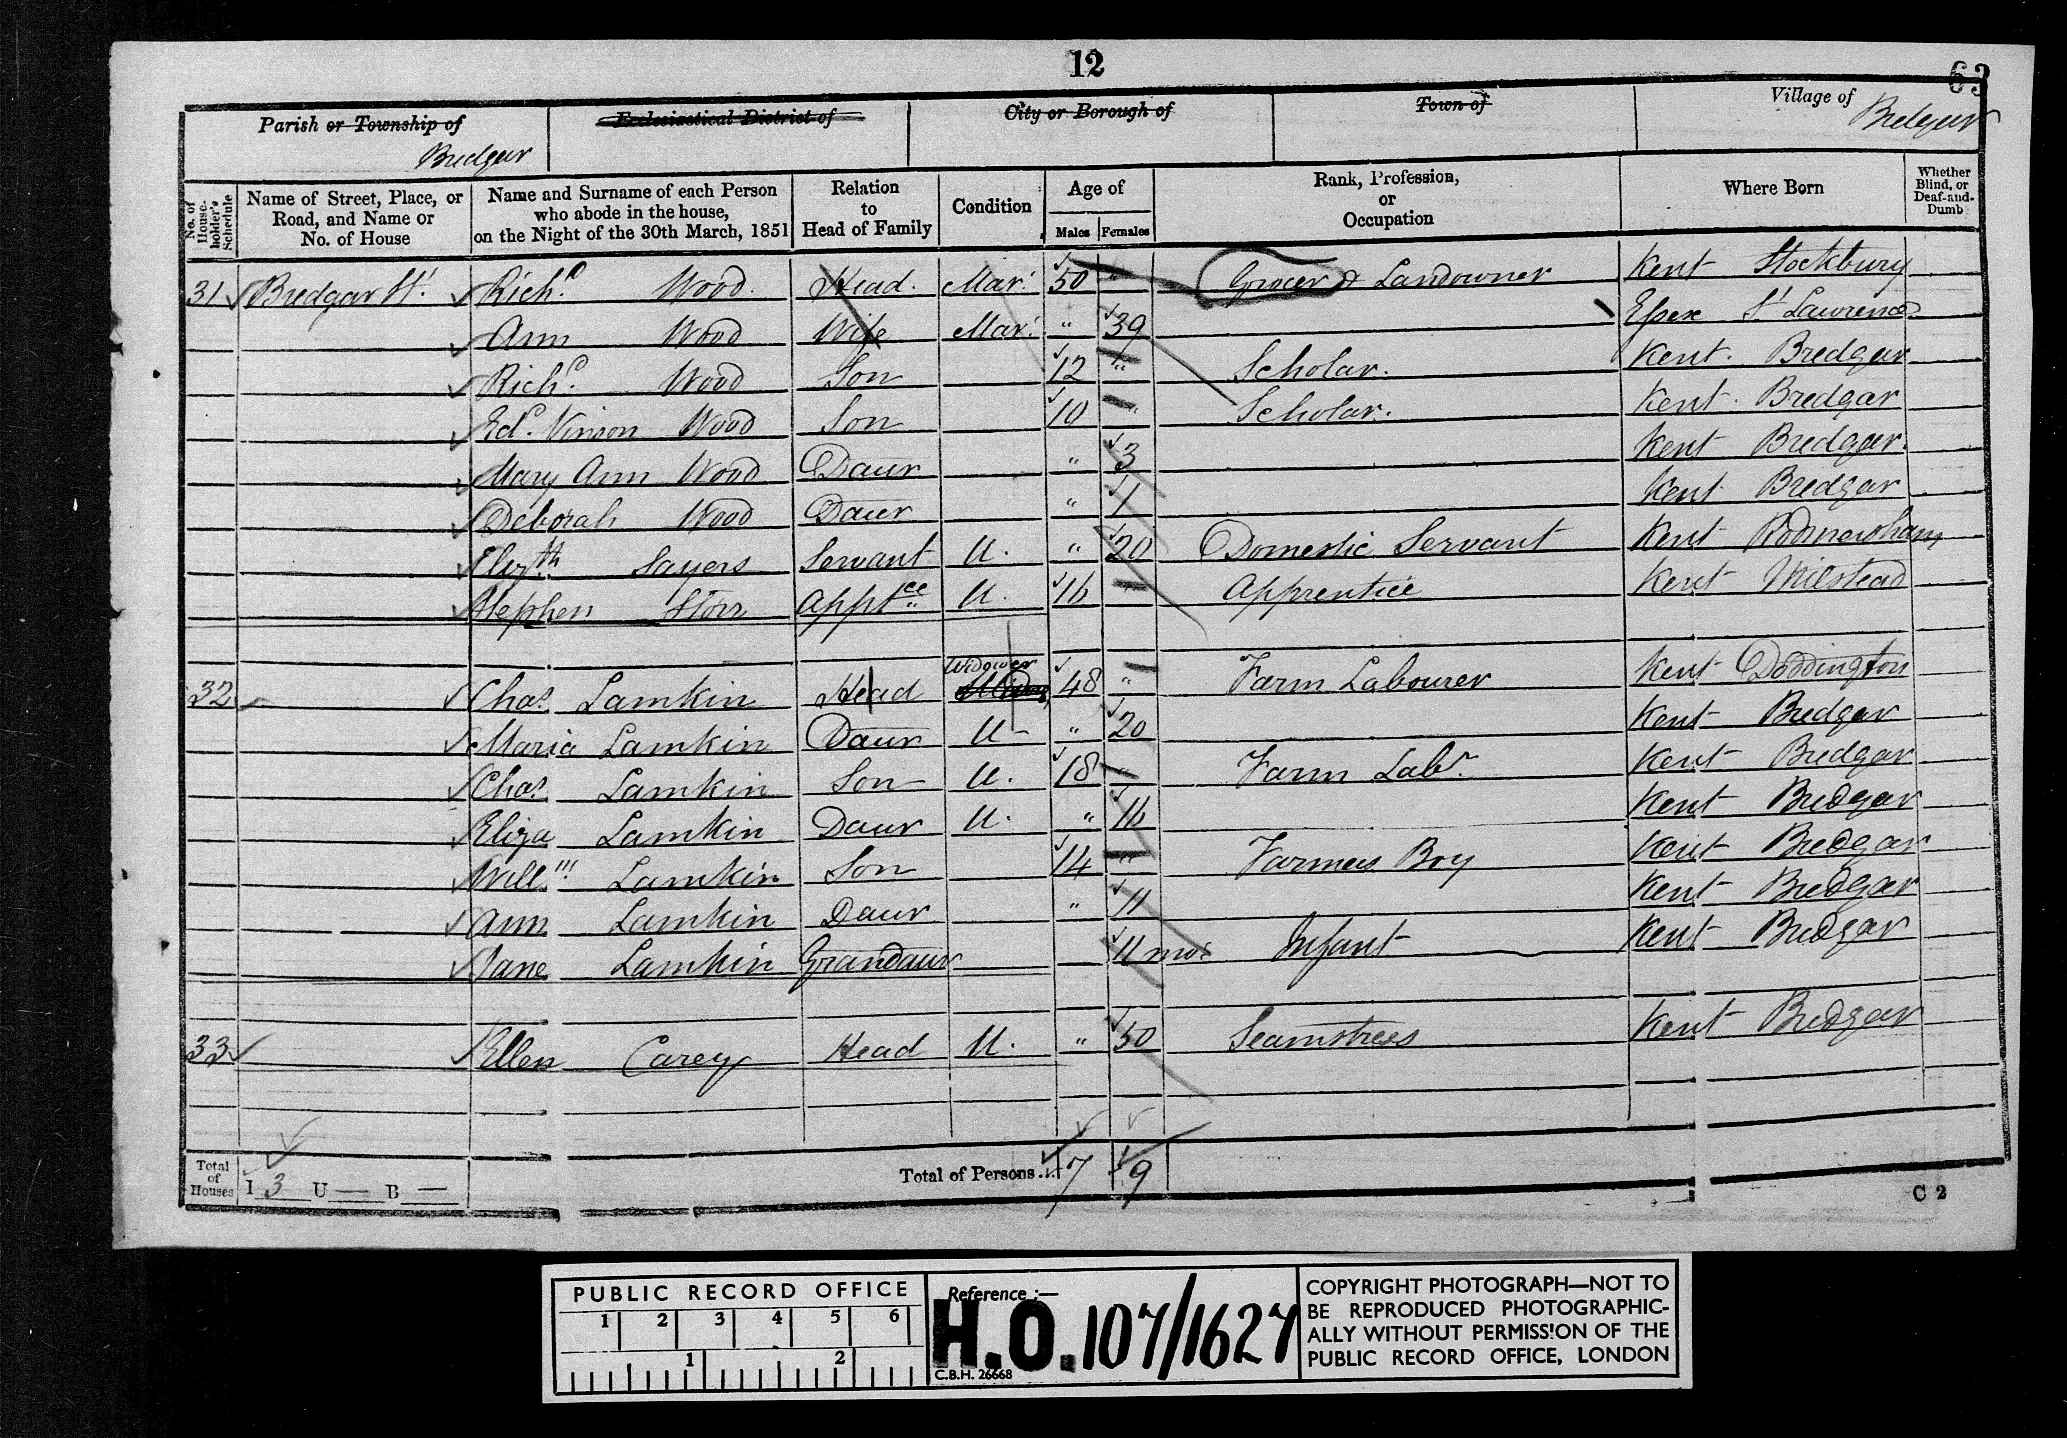 12
63
Parish or Township of Ecclesiastical District of City or Borough of Town of Village of
Bredgar Bredgar
No. of House-holder's Schedule Name of Street, Place, or Road, and Name or No. of House Name and Surname of each Person who abode in the house, on the Night of the 30th March, 1851 Relation to Head of Family Condition Age of Males Females Rank, Profession, or Occupation Where Born Whether Blind, or Deaf-and-Dumb
31 Bredgar St. Richd. Wood Head. Mar. 50 " Grocer & Landowner Kent Stockbury
Ann Wood Wife Mar. " 39 Essex St Lawrence
Richd. Wood Son 12 " Scholar. Kent. Bredgar
Ed. Vinson Wood Son 10 " Scholar. Kent. Bredgar
Mary Ann Wood Daur " 3 Kent Bredgar.
Deborah Wood Daur " 1 Kent Bredgar
Elizth Sayers Servant U. " 20 Domestic Servant Kent Rodmersham
Stephen Storr Apptce U. 16 " Apprentice Kent Milstead
32 Chas. Lamkin Head Widower 48 " Farm Labourer Kent Doddington
Maria Lamkin Daur U " 20 Kent Bredgar
Chas. Lamkin Son U. 18 " Farm Labr. Kent Bredgar
Eliza Lamkin Daur U. " 16 Kent Bredgar
Willm Lamkin Son 14 " Farmers Boy Kent Bredgar
Ann Lamkin Daur " 11 Kent Bredgar
Jane Lamkin Grandaur 11 mos Infant Kent Bredgar
33 Ellen Carey Head U. " 50 Seamstress Kent Bredgar
Total of Houses I 3 U — B — Total of Persons... 7 9
C 2
PUBLIC RECORD OFFICE
1 2 3 4 5 6
1 2
Reference :—
H.O. 107/1627
C.B.H. 26668
COPYRIGHT PHOTOGRAPH—NOT TO
BE REPRODUCED PHOTOGRAPHIC-
ALLY WITHOUT PERMISSION OF THE
PUBLIC RECORD OFFICE, LONDON